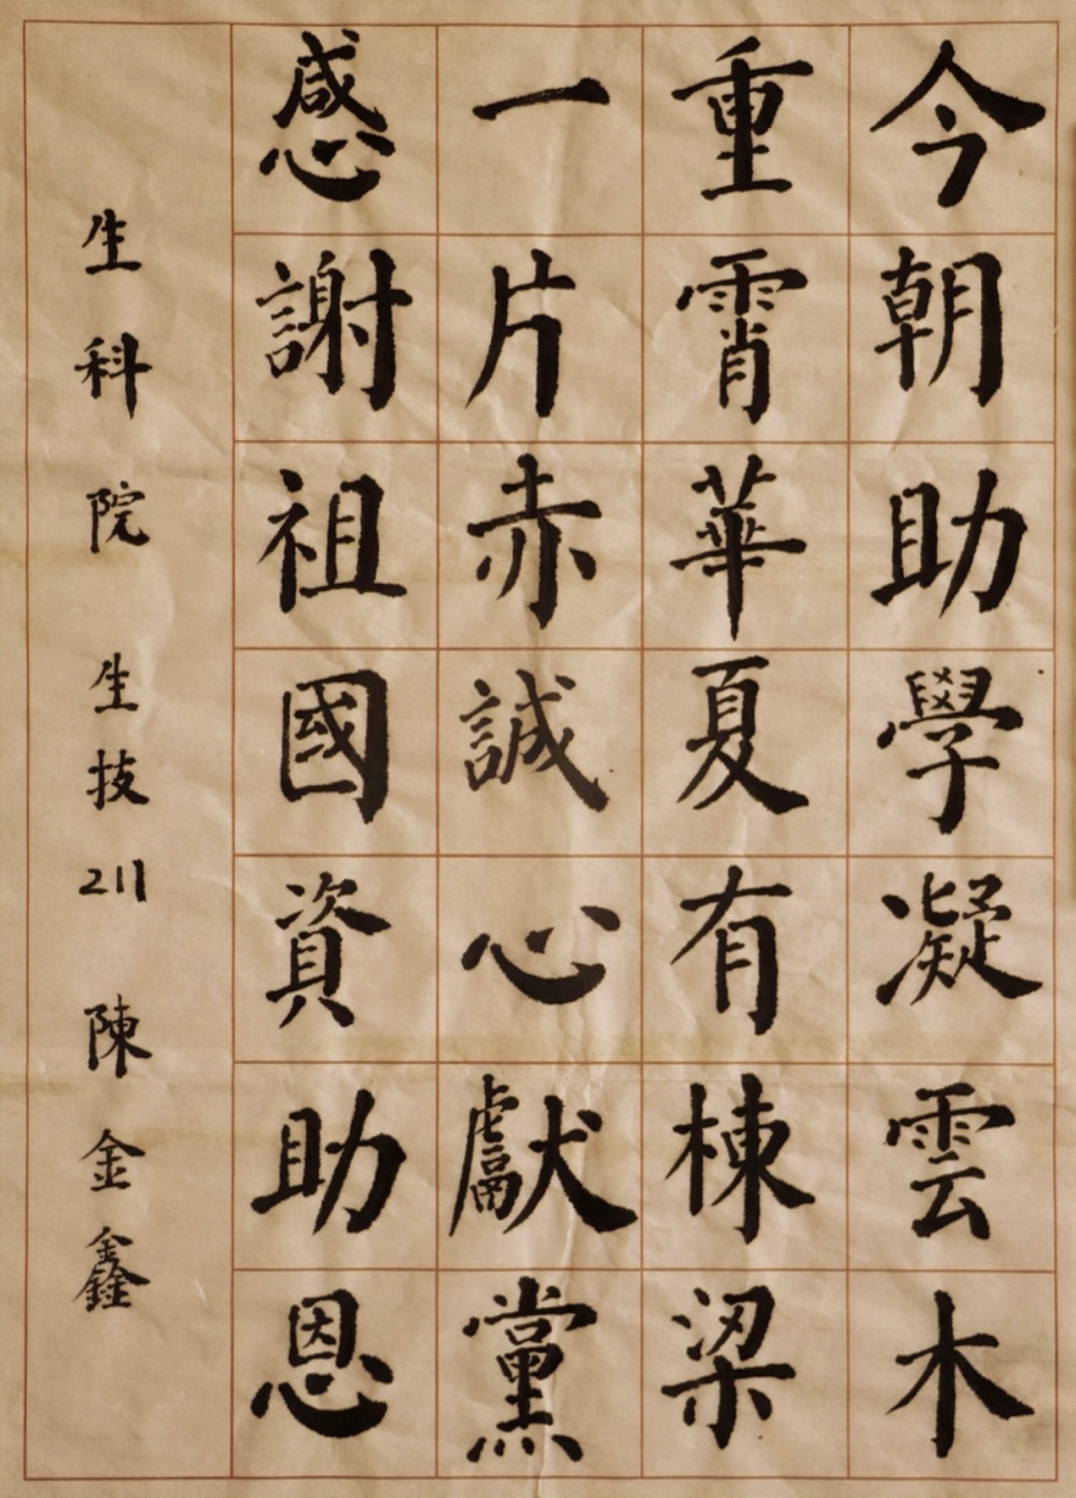 今朝助學凝雲木
重霄華夏有棟梁
一片赤誠心獻黨
感謝祖國資助恩
生科院 生技211 陳金鑫